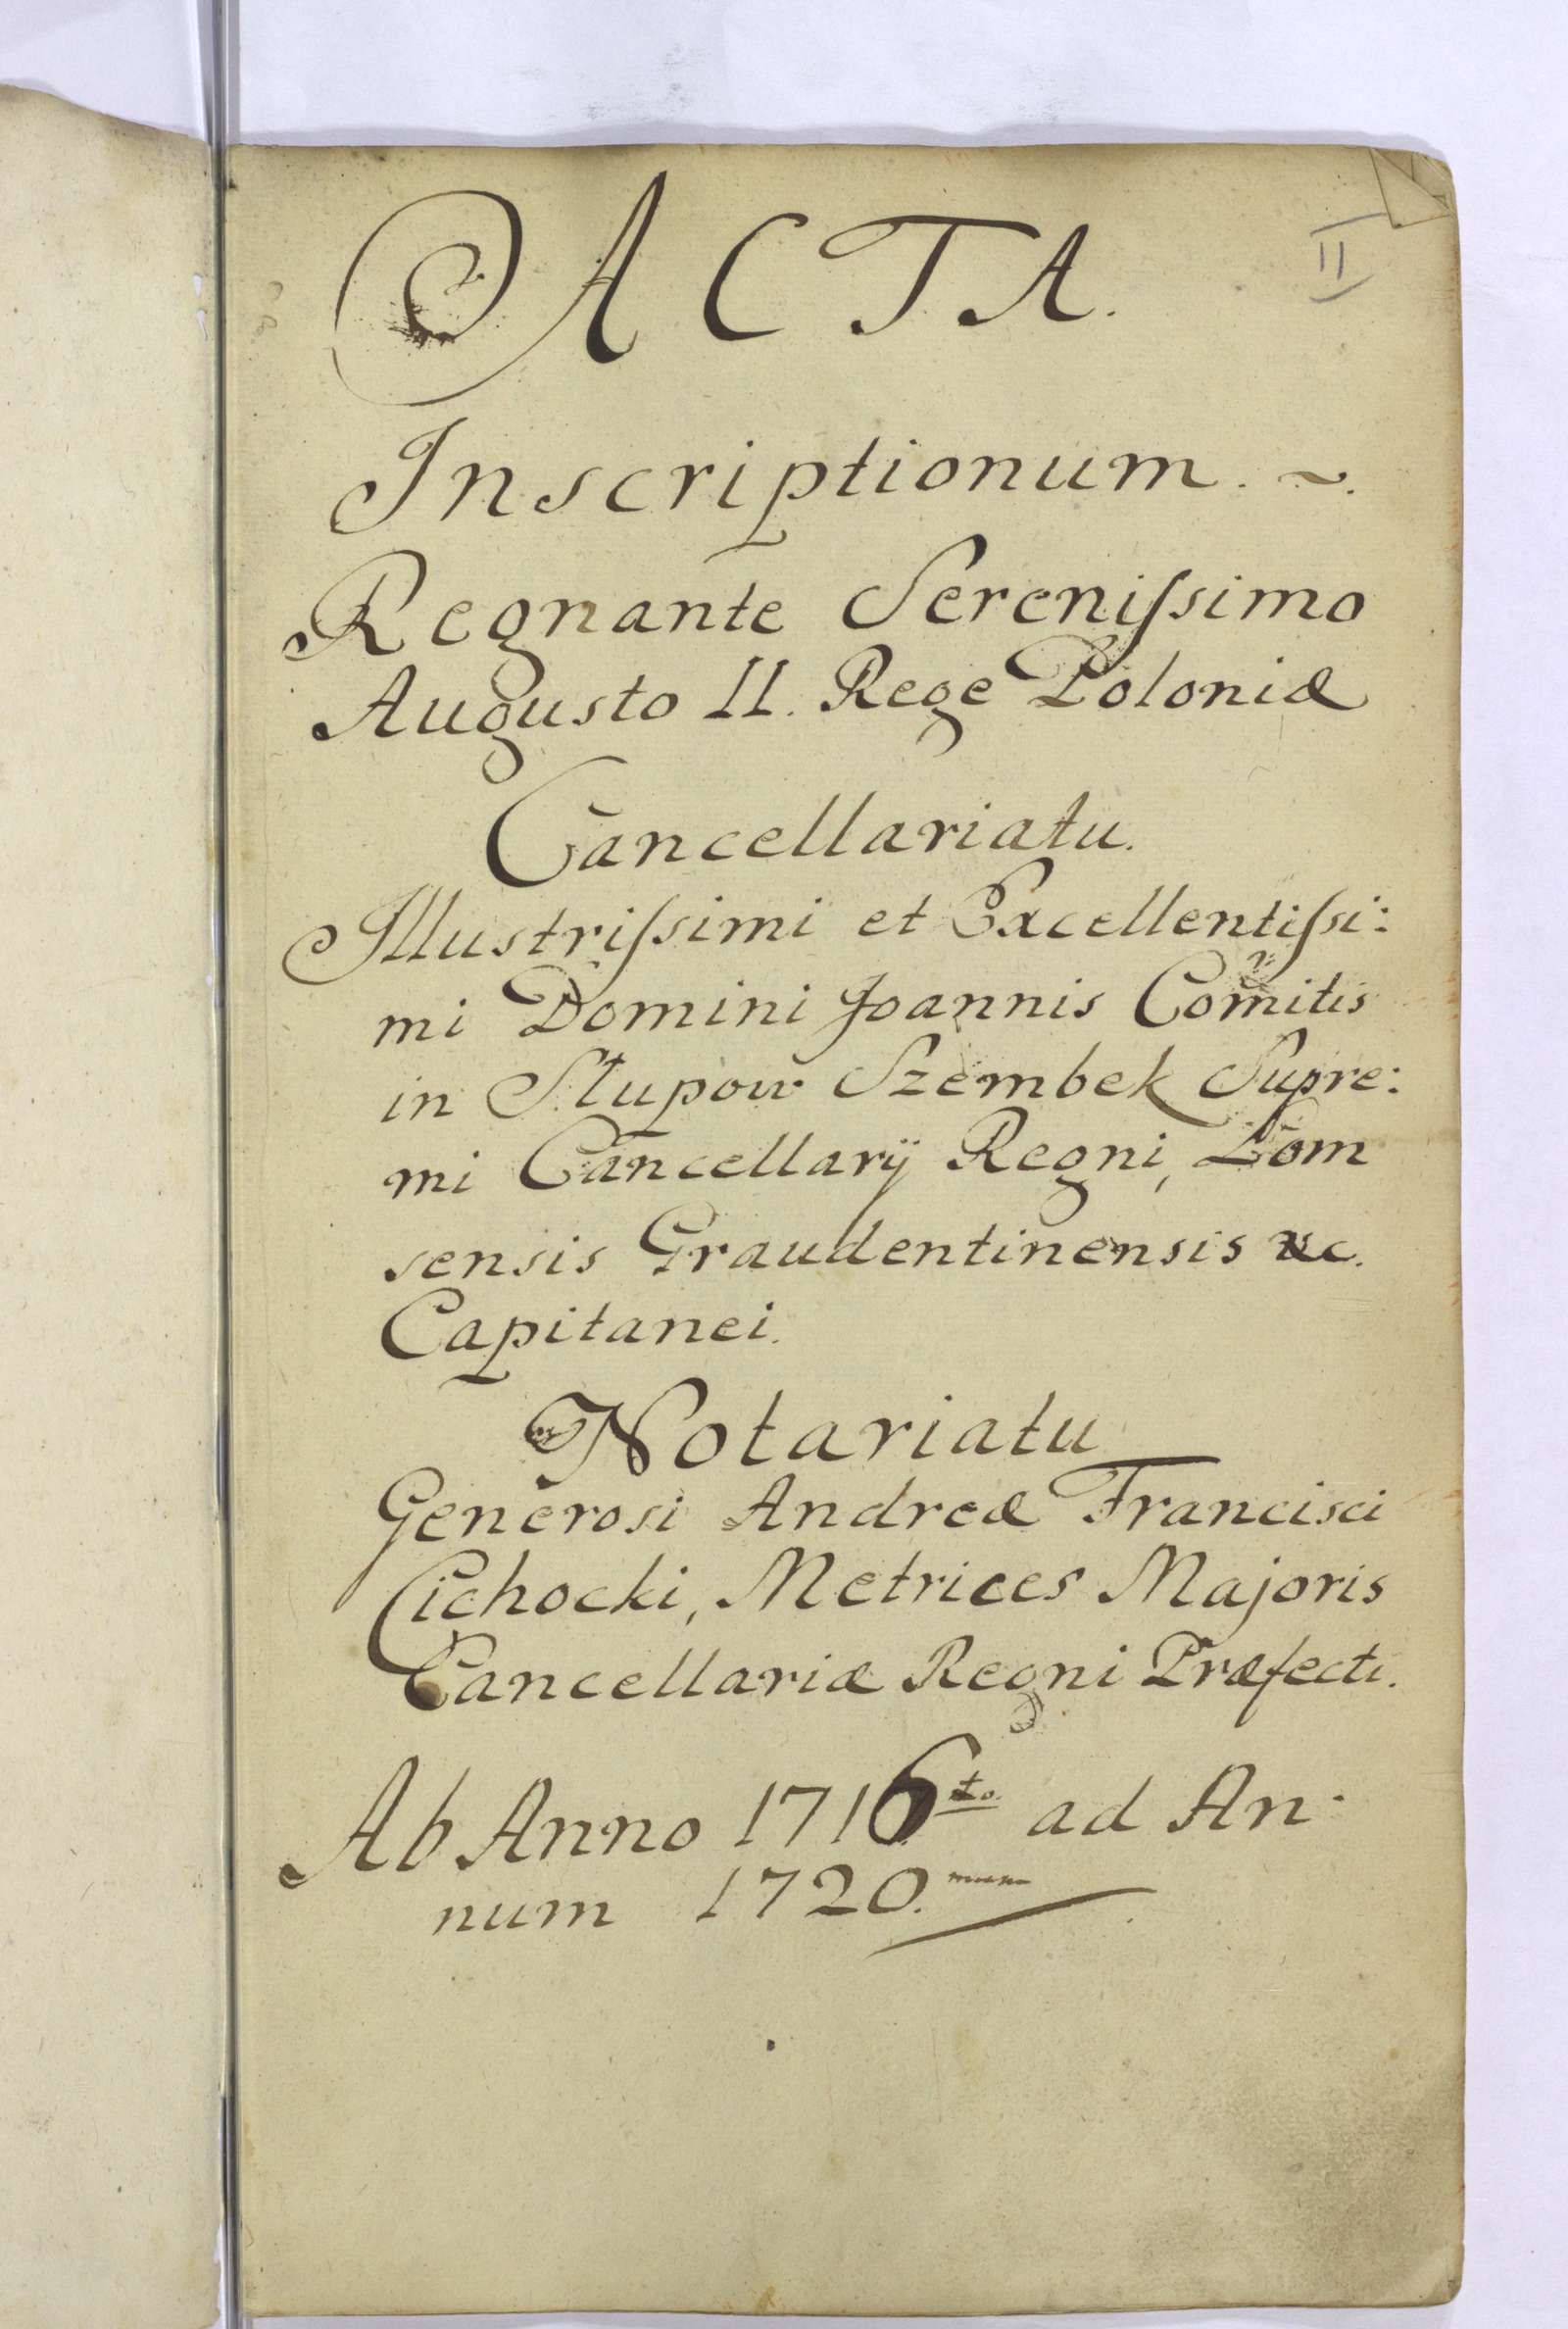 ACTA.
II
Inscriptionum. ~.
Regnante Sereniſsimo
Augusto II. Rege Poloniæ
Cancellariatu.
Illustriſsimi et Excellentiſsi:
mi Domini Joannis Comitis
in Słupow Szembek Supre:
mi Cancellarÿ Regni, Łom
sensis Graudentinensis &c.
Capitanei.
Notariatu
Generosi Andreæ Francisci
Cichocki, Metrices Majoris
Cancellariæ Regni Præfecti.
Ab Anno 1716to. ad An·
num 1720.mum